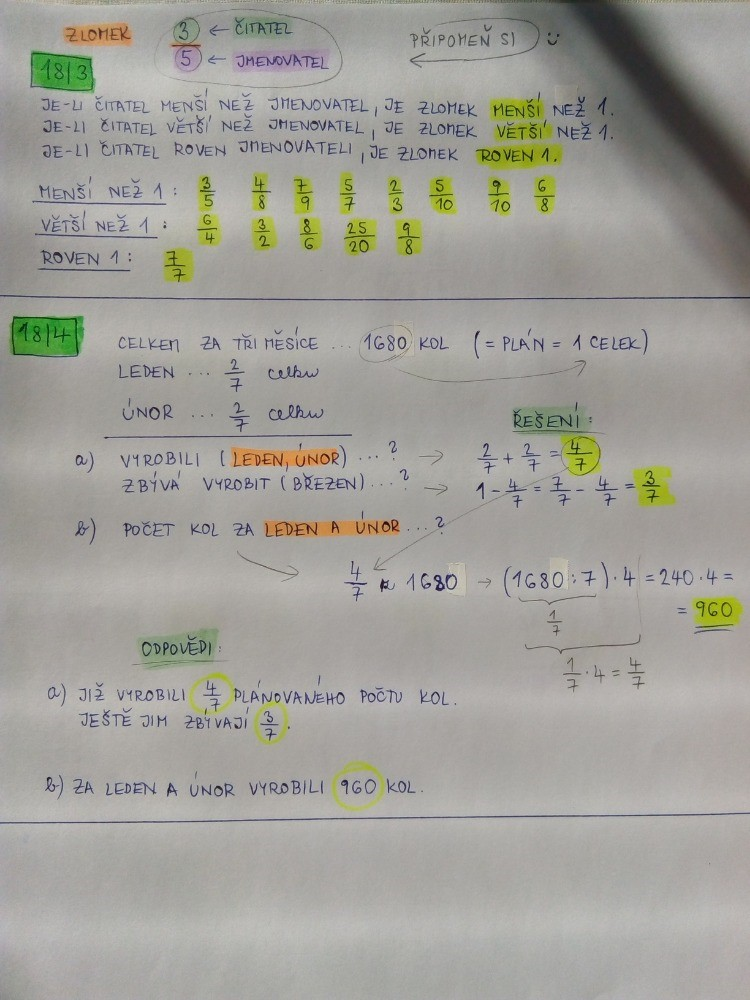 ZLOMEK 3/5 ← ČITATEL ← JMENOVATEL PŘIPOMEŇ SI
18/3
JE-LI ČITATEL MENŠÍ NEŽ JMENOVATEL, JE ZLOMEK MENŠÍ NEŽ 1.
JE-LI ČITATEL VĚTŠÍ NEŽ JMENOVATEL, JE ZLOMEK VĚTŠÍ NEŽ 1.
JE-LI ČITATEL ROVEN JMENOVATELI, JE ZLOMEK ROVEN 1.
MENŠÍ NEŽ 1: 3/5 4/8 7/9 5/7 2/3 5/10 9/10 6/8
VĚTŠÍ NEŽ 1: 6/4 3/2 8/6 25/20 9/8
ROVEN 1: 7/7
18/4 CELKEM ZA TŘI MĚSÍCE ... 1680 KOL (= PLÁN = 1 CELEK)
LEDEN ... 2/7 celku
ÚNOR ... 2/7 celku
ŘEŠENÍ:
a) VYROBILI (LEDEN, ÚNOR) ... ? → 2/7 + 2/7 = 4/7
ZBÝVÁ VYROBIT (BŘEZEN) ... ? → 1 - 4/7 = 7/7 - 4/7 = 3/7
b) POČET KOL ZA LEDEN A ÚNOR ... ?
4/7 z 1680 → (1680 : 7) · 4 = 240 · 4 =
= 960
1/7
1/7 · 4 = 4/7
ODPOVĚDI:
a) JIŽ VYROBILI 4/7 PLÁNOVANÉHO POČTU KOL.
JEŠTĚ JIM ZBÝVAJÍ 3/7.
b) ZA LEDEN A ÚNOR VYROBILI 960 KOL.